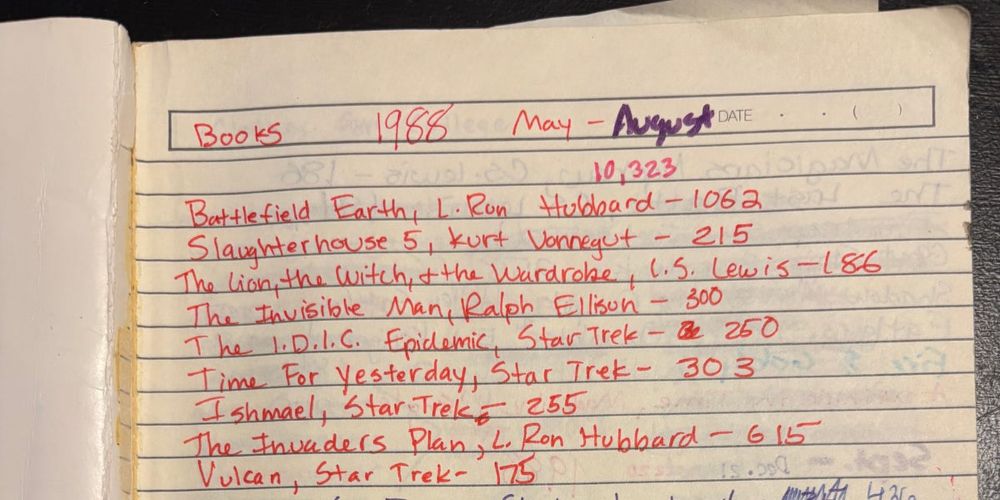 Books 1988 May - August DATE . . ( )
10,323
Battlefield Earth, L. Ron Hubbard - 1062
Slaughterhouse 5, Kurt Vonnegut - 215
The Lion, the Witch, + the Wardrobe, C.S. Lewis - 186
The Invisible Man, Ralph Ellison - 300
The I.D.I.C. Epidemic, Star Trek - 250
Time For Yesterday, Star Trek - 303
Ishmael, Star Trek - 255
The Invaders Plan, L. Ron Hubbard - 615
Vulcan, Star Trek - 175